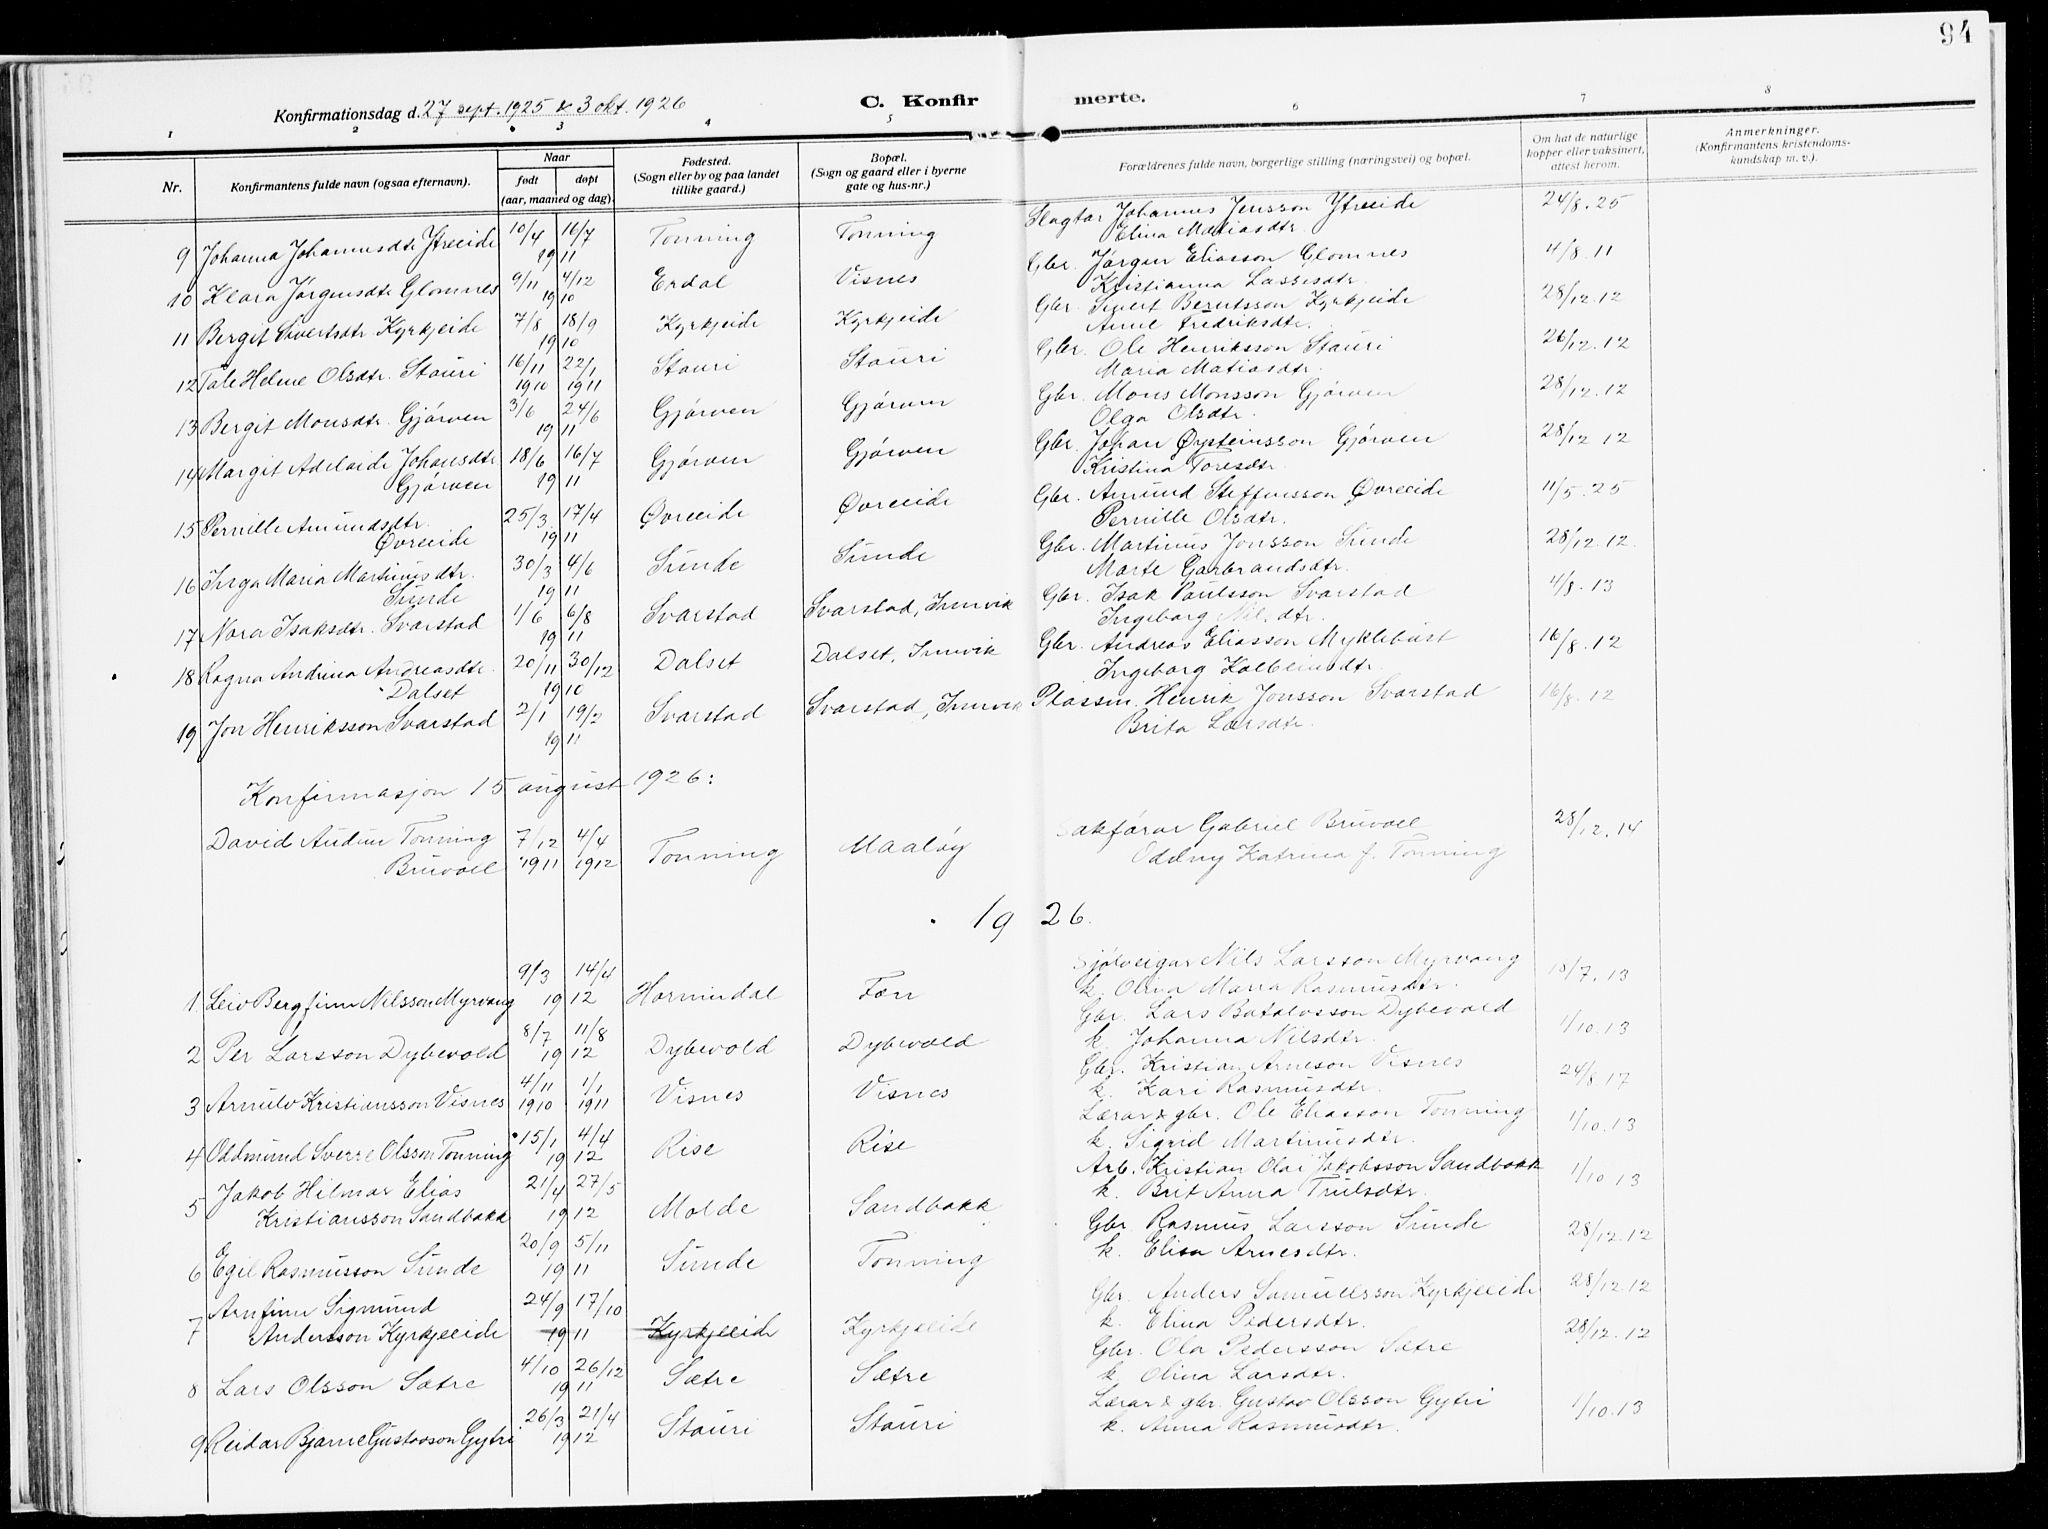 94
Konfirmationsdag d. 27 sept. 1925 & 3 okt. 1926
C. Konfirmerte.
1 2 3 4 5 6 7 8
Nr. Konfirmantens fulde navn (ogsaa efternavn). Naar født døpt (aar, maaned og dag). Fødested. (Sogn eller by og paa landet tillike gaard.) Bopæl. (Sogn og gaard eller i byerne gate og hus-nr.) Forældrenes fulde navn, borgerlige stilling (næringsvei) og bopæl. Om hat de naturlige kopper eller vaksinert, attest herom. Anmerkninger. (Konfirmantens kristendomskundskap m. v.).
9 Johanna Johannesdtr Ytreeide 10/4 16/7 1911 Tonning Tonning Slagtar Johannes Jensson Ytreeide 24/8.25
Elina Matiasdtr.
10 Klara Jørgensdtr Glomnes 9/11 4/12 1910 Erdal Visnes Gbr. Jørgen Eliasson Glomnes 4/8.11
Kristianna Lassesdtr.
11 Bergit Sivertsdtr Kyrkjeide 7/8 18/9 1910 Kyrkjeide Kyrkjeide Gbr. Sivert Berntsson Kyrkjeide 28/12.12
Anne Fredriksdtr.
12 Tale Helene Olsdtr. Stauri 16/11 1910 22/1 1911 Stauri Stauri Gbr. Ole Henriksson Stauri 26/12.12
Maria Matiasdtr.
13 Bergit Monsdtr. Gjørven 3/6 24/6 1911 Gjørven Gjørven Gbr. Mons Monsson Gjørven 28/12.12
Olga Olsdtr.
14 Margit Adelaide Johansdtr 18/6 16/7 1911 Gjørven Gjørven Gbr. Johan Øysteinsson Gjørven 28/12 12
Gjørven Kristina Toresdtr.
15 Pernille Amundsdtr. 25/3 17/4 1911 Øvreeide Øvreeide Gbr. Amund Steffensson Øvreeide 11/5.25
Øvreeide Pernille Olsdtr.
16 Inga Maria Martinusdtr. 30/3 4/6 1911 Sunde Sunde Gbr. Martinus Jonsson Sunde 28/12.12.
Sunde Marte Garbrandsdtr.
17 Nora Isaksdtr. Svarstad 1/6 6/8 1911 Svarstad Svarstad, Innvik Gbr. Isak Paulsson Svarstad 4/8.13
Ingeborg Nil.dtr.
18 Ragna Andrina Andreasdtr. 20/11 30/12 1910 Dalset Dalset, Innvik Gbr. Andreas Eliasson Myklebust 16/8.12
Dalset Ingeborg Kolbeinsdtr.
19 Jon Henriksson Svarstad 2/1 19/2 1911 Svarstad Svarstad, Innvik Plassm. Henrik Jonsson Svarstad 16/8.12
Brita Larsdtr.
Konfirmasjon 15 august 1926:
David Audun Tonning 7/12 4/4 Tonning Maaløy Sakførar Gabriel Bruvoll 28/12.14
Bruvoll 1911 1912 Oddny Katrina f. Tonning
1926.
1 Leiv Bergfinn Nilsson Myrvang 9/3 14/4 1912 Hornindal Fæn Sjølveigar Nils Larsson Myrvang 18/7.13
k. Olina Maria Rasmusdtr.
2 Per Larsson Dybevold 8/7 11/8 1912 Dybevold Dybevold Gbr. Lars Batolvsson Dybevold 1/10.13
k. Johanna Nilsdtr.
3 Arnulv Kristiansson Visnes 4/11 1910 1/1 1911 Visnes Visnes Gbr. Kristian Arneson Visnes 24/8.17
k. Kari Rasmusdtr.
4 Oddmund Sverre Olsson Tonning 15/1 4/4 1912 Rise Rise Lærar & gbr. Ole Eliasson Tonning 1/10.13
k. Sigrid Martinusdtr.
5 Jakob Hilmar Elias 21/4 27/5 1912 Molde Sandbakk Arb. Kristian Olai Jakobsson Sandbakk 1/10 13
Kristiansson Sandbakk k. Brit Anna Trulsdtr.
6 Egil Rasmusson Sunde 20/9 5/11 1911 Sunde Tonning Gbr Rasmus Larsson Sunde 28/12.12
k. Elisa Arnesdtr.
7 Arnfinn Sigmund 24/9 17/10 1911 Kyrkjeeide Kyrkjeeide Gbr. Anders Samuelsson Kyrkjeeide 28/12.12
Andersson Kyrkjeeide k. Elina Pedersdtr.
8 Lars Olsson Sætre 4/10 26/12 1911 Sætre Sætre Gbr. Ola Pedersson Sætre 28/12.12
k. Olina Larsdtr.
9 Reidar Bjarne Gustavsson Gytri 26/3 21/4 1912 Stauri Stauri Lærar & gbr. Gustav Olsson Gytri 1/10.13
k. Anna Rasmusdtr.